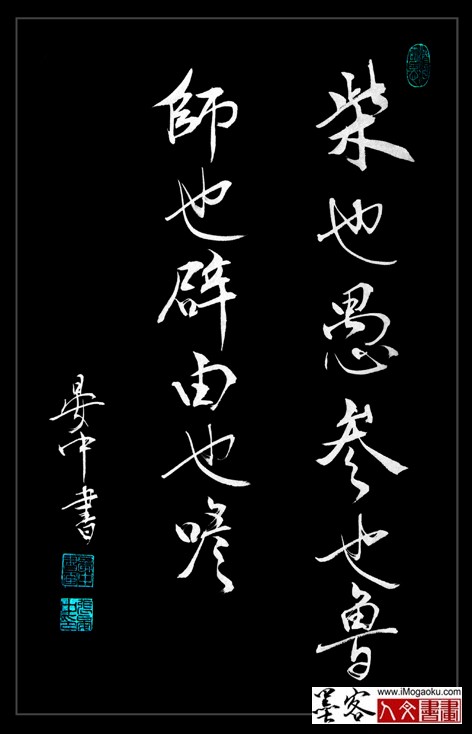 柴也愚參也魯
師也辟由也喭
晏中書
www.iMogaoku.com
墨客
人文書畫